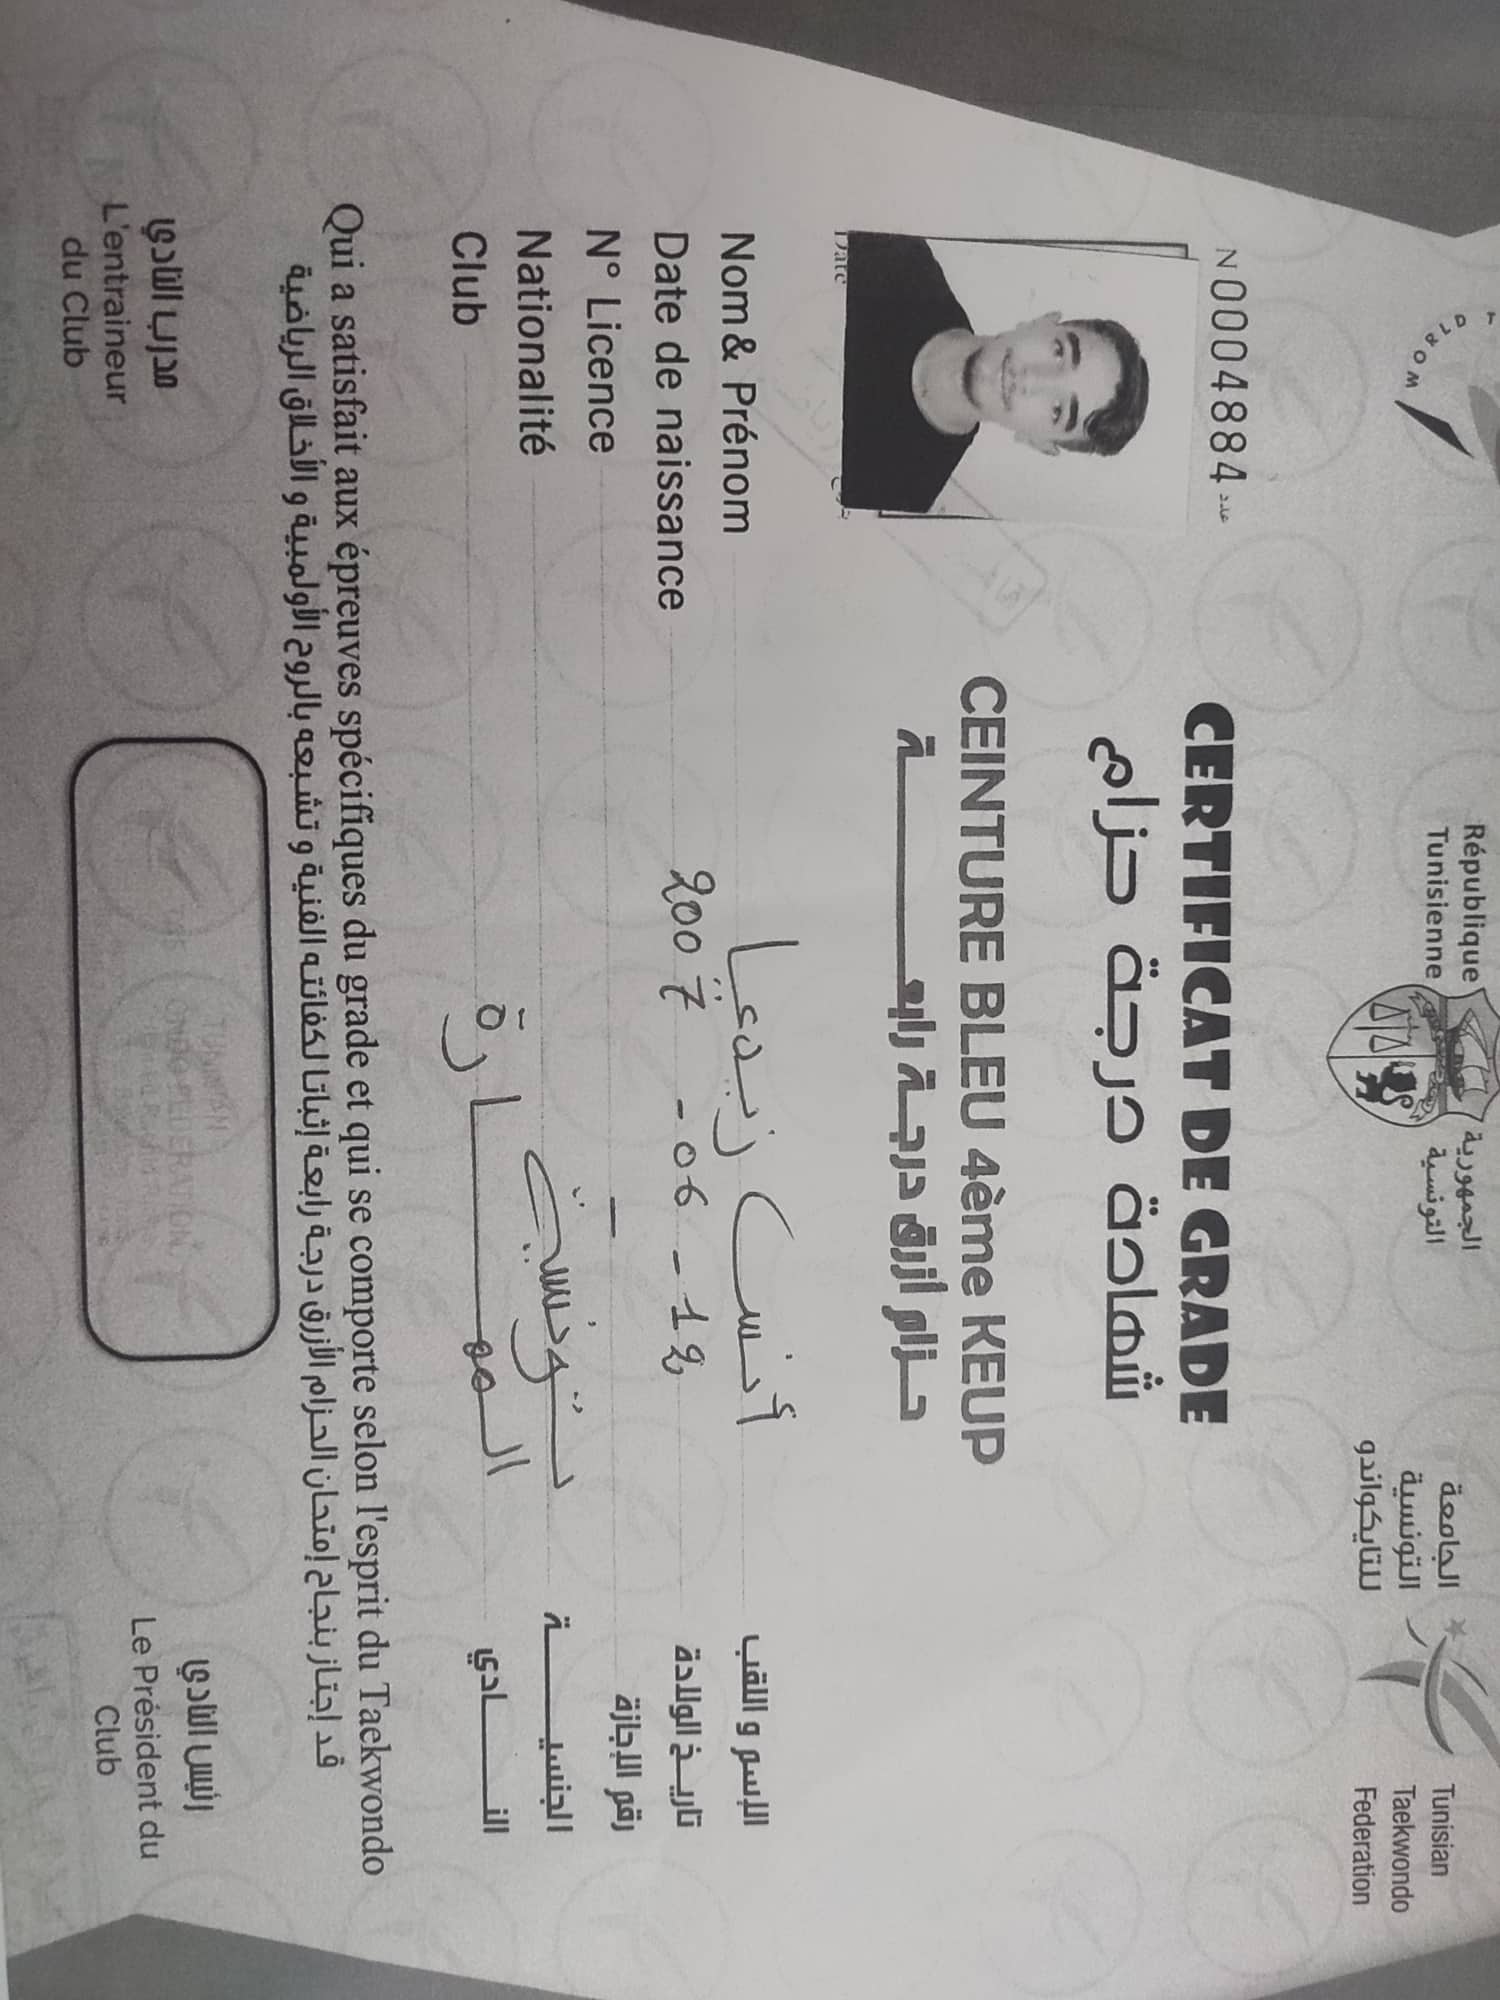 République
Tunisienne
الجمهورية
التونسية
الجامعة
التونسية
للتايكواندو
Tunisian
Taekwondo
Federation
N 0004884 عدد
CERTIFICAT DE GRADE
شهادة درجة حزام
CEINTURE BLEU 4ème KEUP
حزام أزرق درجة رابعة
Date
Nom & Prénom أنس الإسم و اللقب
Date de naissance 2007 - 06 - 12 تاريخ الولادة
N° Licence - رقم الإجازة
Nationalité تونسية الجنسية
Club النادي
Qui a satisfait aux épreuves spécifiques du grade et qui se comporte selon l'esprit du Taekwondo
قد إجتاز بنجاح إمتحان الحزام الأزرق درجة رابعة إثباتا لكفائته الفنية و تشبعه بالروح الأولمبية و الأخلاق الرياضية
مدرب النادي
L'entraineur
du Club
رئيس النادي
Le Président du
Club